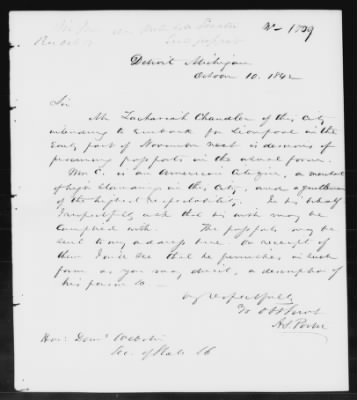 Detroit Michigan
October 10. 1842
Sir
Mr Zachariah Chandler of this City
intending to Embark for Liverpool in the
Early part of November next is desirous of
procuring passports in the usual form.
Mr C. is an American Citizen, a merchant
of high standing in this City, and a gentleman
of the highest respectability. In his behalf
I respectfully ask that his wish may be
complied with. The passports may be
sent to my address here. On receipt of
them I will see that he furnishes in such
form as you may direct, a description of
his person &c
Very respectfully
Yr Obt Servt
A. S. Porter
Hon: Danl Webster
Sec. of State